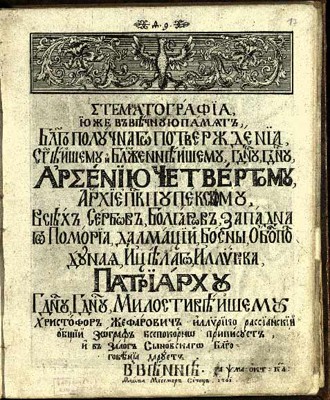 СТЕМАТОГРАФІА,
ЮЖЕ ВЪ ВѢЧНУЮ ПАМАТЬ,
БЛГОПОЛУЧНАГѠ ПОТВЕРЖДЕНІА,
АРСЕНІЮ ЧЕТВЕРТОМУ,
АРХІЕПІСКУПУ ПЕКСКОМУ,
ВСѢХЪ СЕРБѠВЪ, БОЛГАРѠВЪ, ЗАПАДНА
ГѠ ПОМОРІА, ДАЛМАЦІИ, БОСНЫ, ОБОПОЛЪ
ДУНАА, И ЦѢЛАГѠ ИЛЛУРІКА,
ПАТРІАРХУ
ГДНУ, ГДНУ, МИЛОСТИВѢИШЕМУ
ХРИСТОФОРЪ ЖЕФАРОВИЧЪ ИЛЛѴРІКО РАССІАНСКІЙ
ОБЩІЙ ЗѠГРАФЪ ВСЕПОКОРНѠ ПРИПИСУЕТЪ,
И ВЪ ЗАЛОГЪ СЫНОВСКАГѠ БЛАГО
ГОВѢНІА ДАРУЕТЪ.
В ВІЕННѢ.